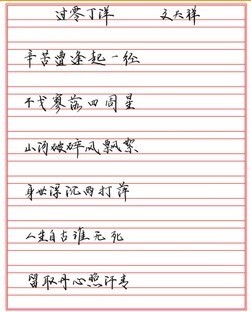 过零丁洋 文天祥
辛苦遭逢起一经
干戈寥落四周星
山河破碎风飘絮
身世浮沉雨打萍
人生自古谁无死
留取丹心照汗青